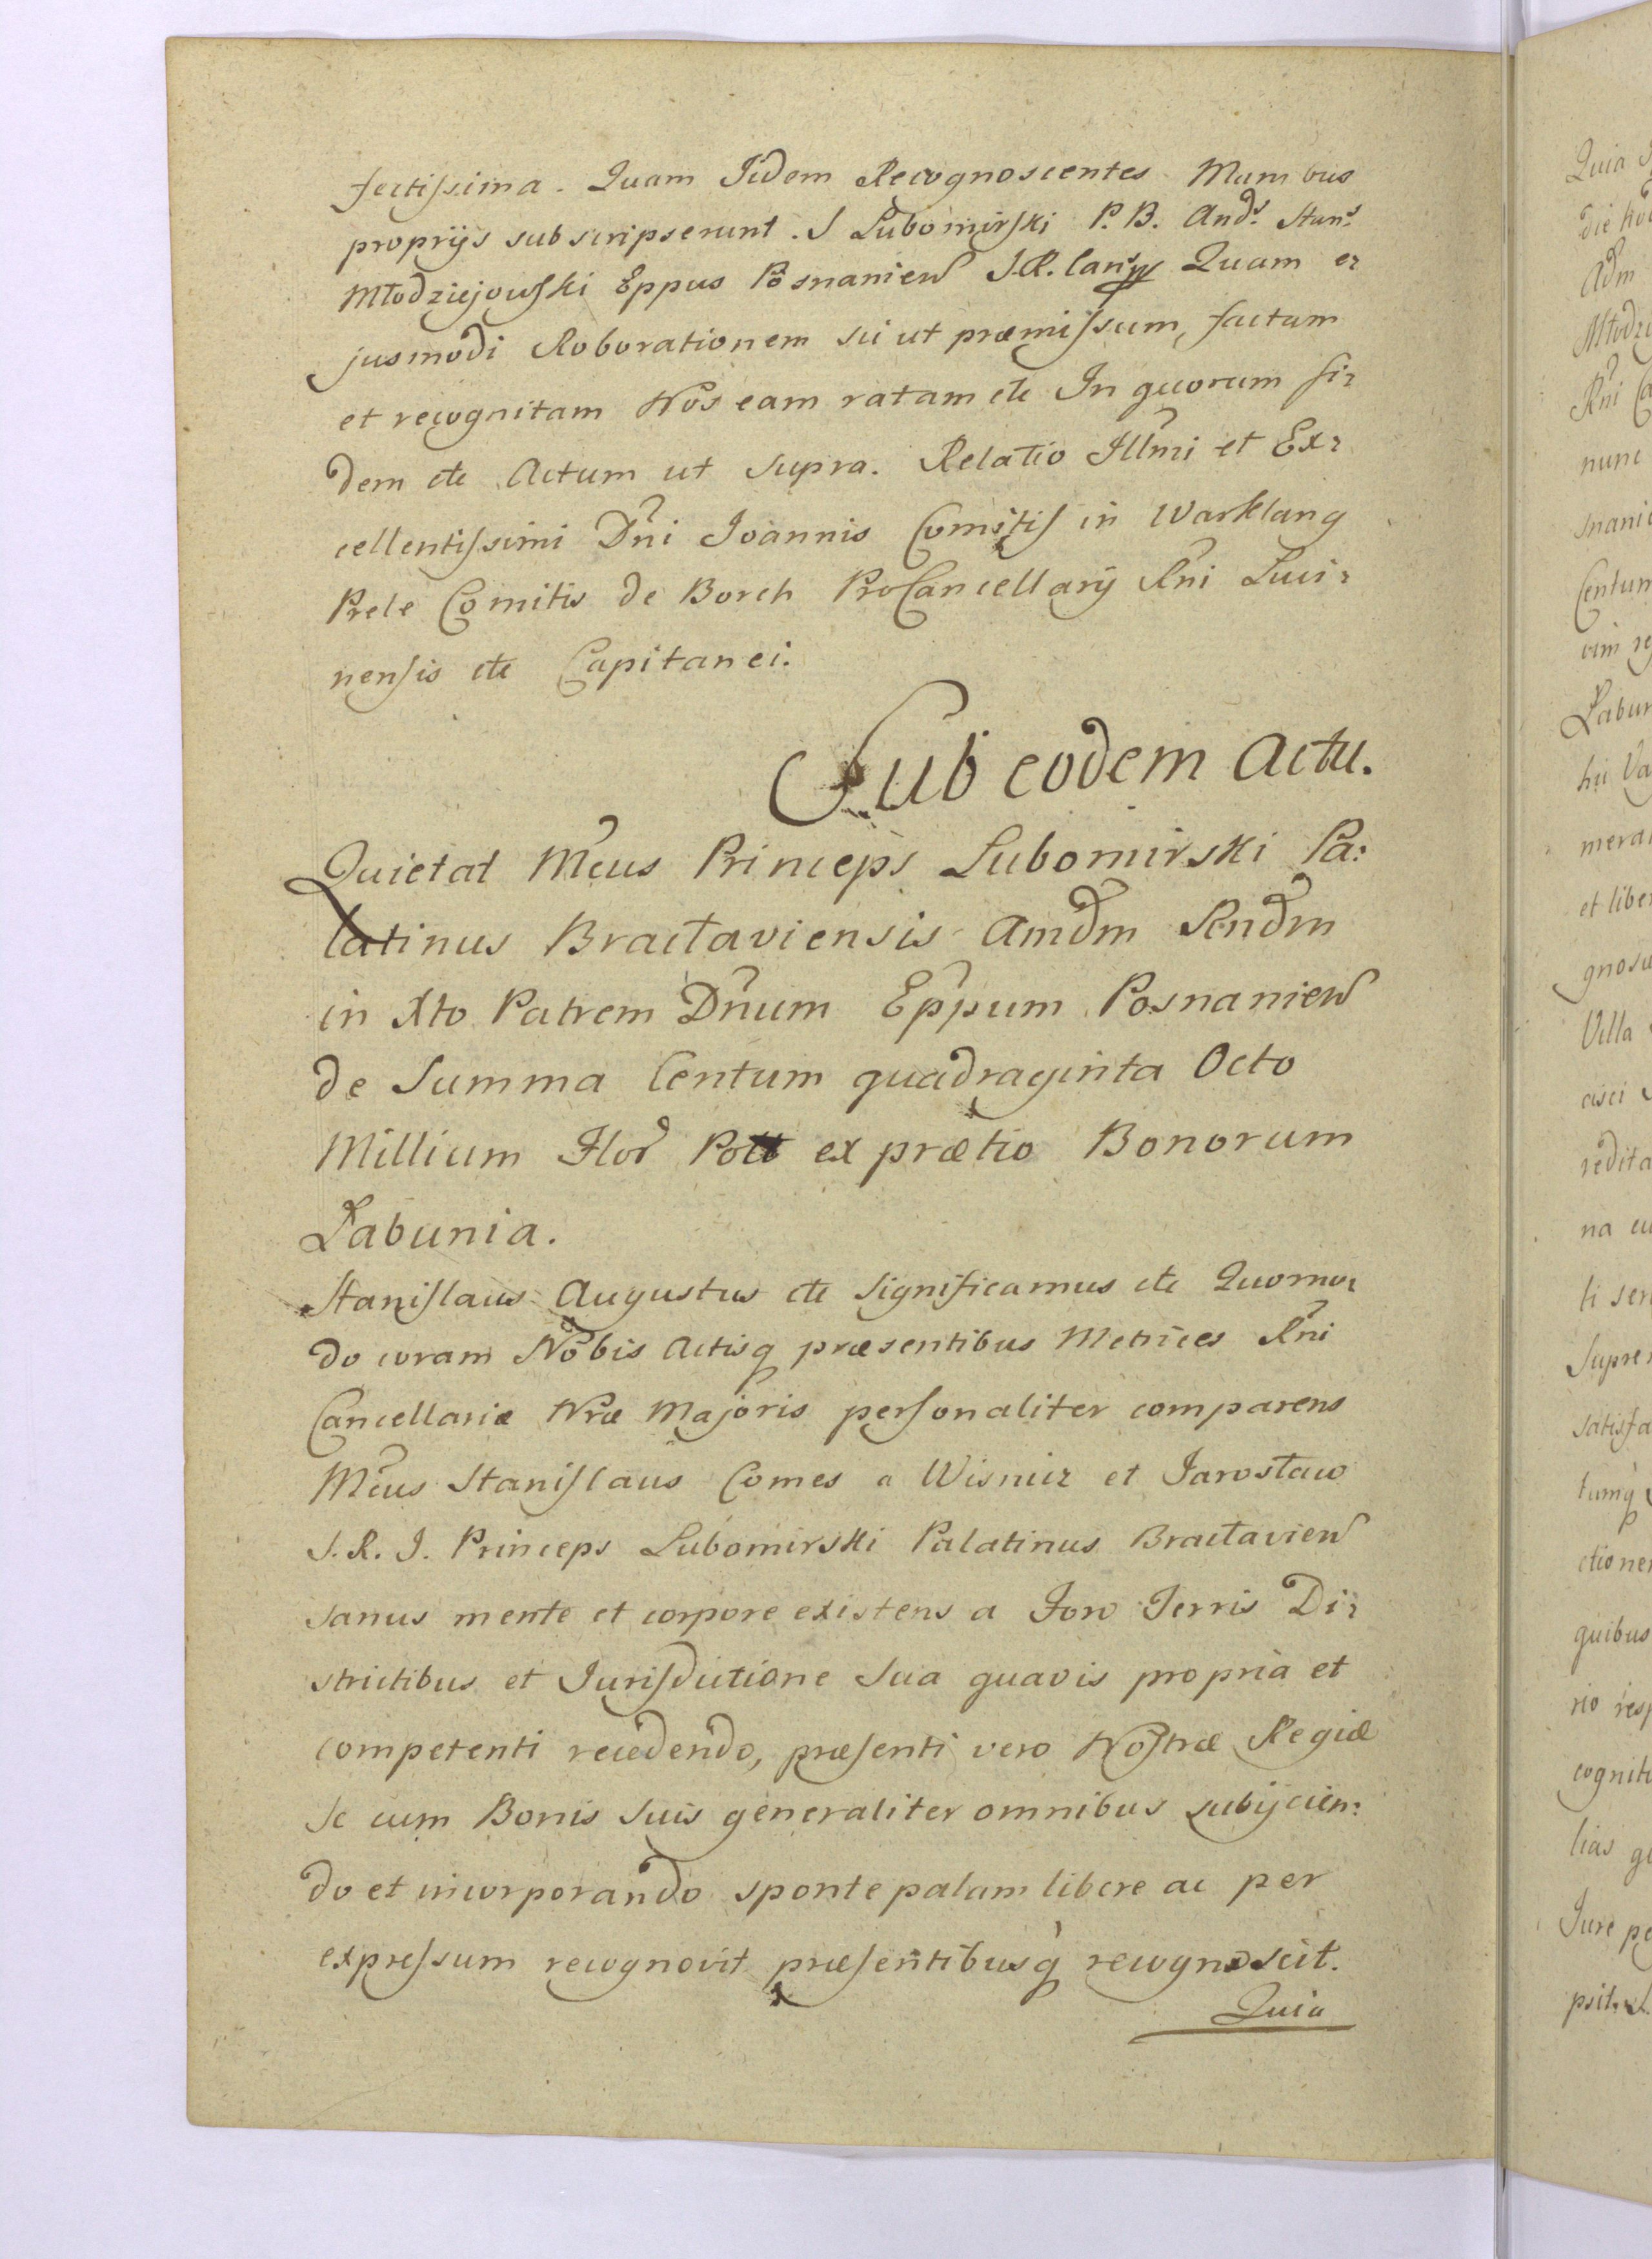 fectissima. Quam Iidem Recognoscentes Manibus
proprijs subscripserunt. S Lubomirski P. B. And: Stan:
Młodziejowski Eppus Posnanien S. R. Can: Quam e=
jusmodi Roborationem sic ut præmissum, factam
et recognitam Nos eam ratam etc In quorum fi=
dem etc Actum ut supra. Relatio Illmi et Ex=
cellentissimi Dni Joannis Comitis in Warklang
Prele Comitis de Borch ProCancellarij Rni Luci=
nensis etc Capitanei.
Sub eodem Actu.
Quietat Mcus Princeps Lubomirski Pa:
latinus Bracłaviensis Amdm Rndm
in Xto Patrem Dnum Eppum Posnanien
de Summa Centum quadraginta Octo
Millium Flor Poll ex prætio Bonorum
Łabunia.
Stanislaus Augustus etc Significamus etc Quomo=
do coram Nobis Actisq præsentibus Metrices Rni
Cancellariæ Nræ Majoris personaliter comparens
Mcus Stanislaus Comes a Wisnicz et Jarosław
S. R. I. Princeps Lubomirski Palatinus Bracłavien
sanus mente et corpore existens a Foro Terris Di=
strictibus et Jurisdictione sua quavis propria et
competenti recedendo, præsenti vero Nostræ Regiæ
se cum Bonis suis generaliter omnibus subijcien:
do et incorporando sponte palam libere ac per
expressum recognovit præsentibusq recognoscit.
Quia